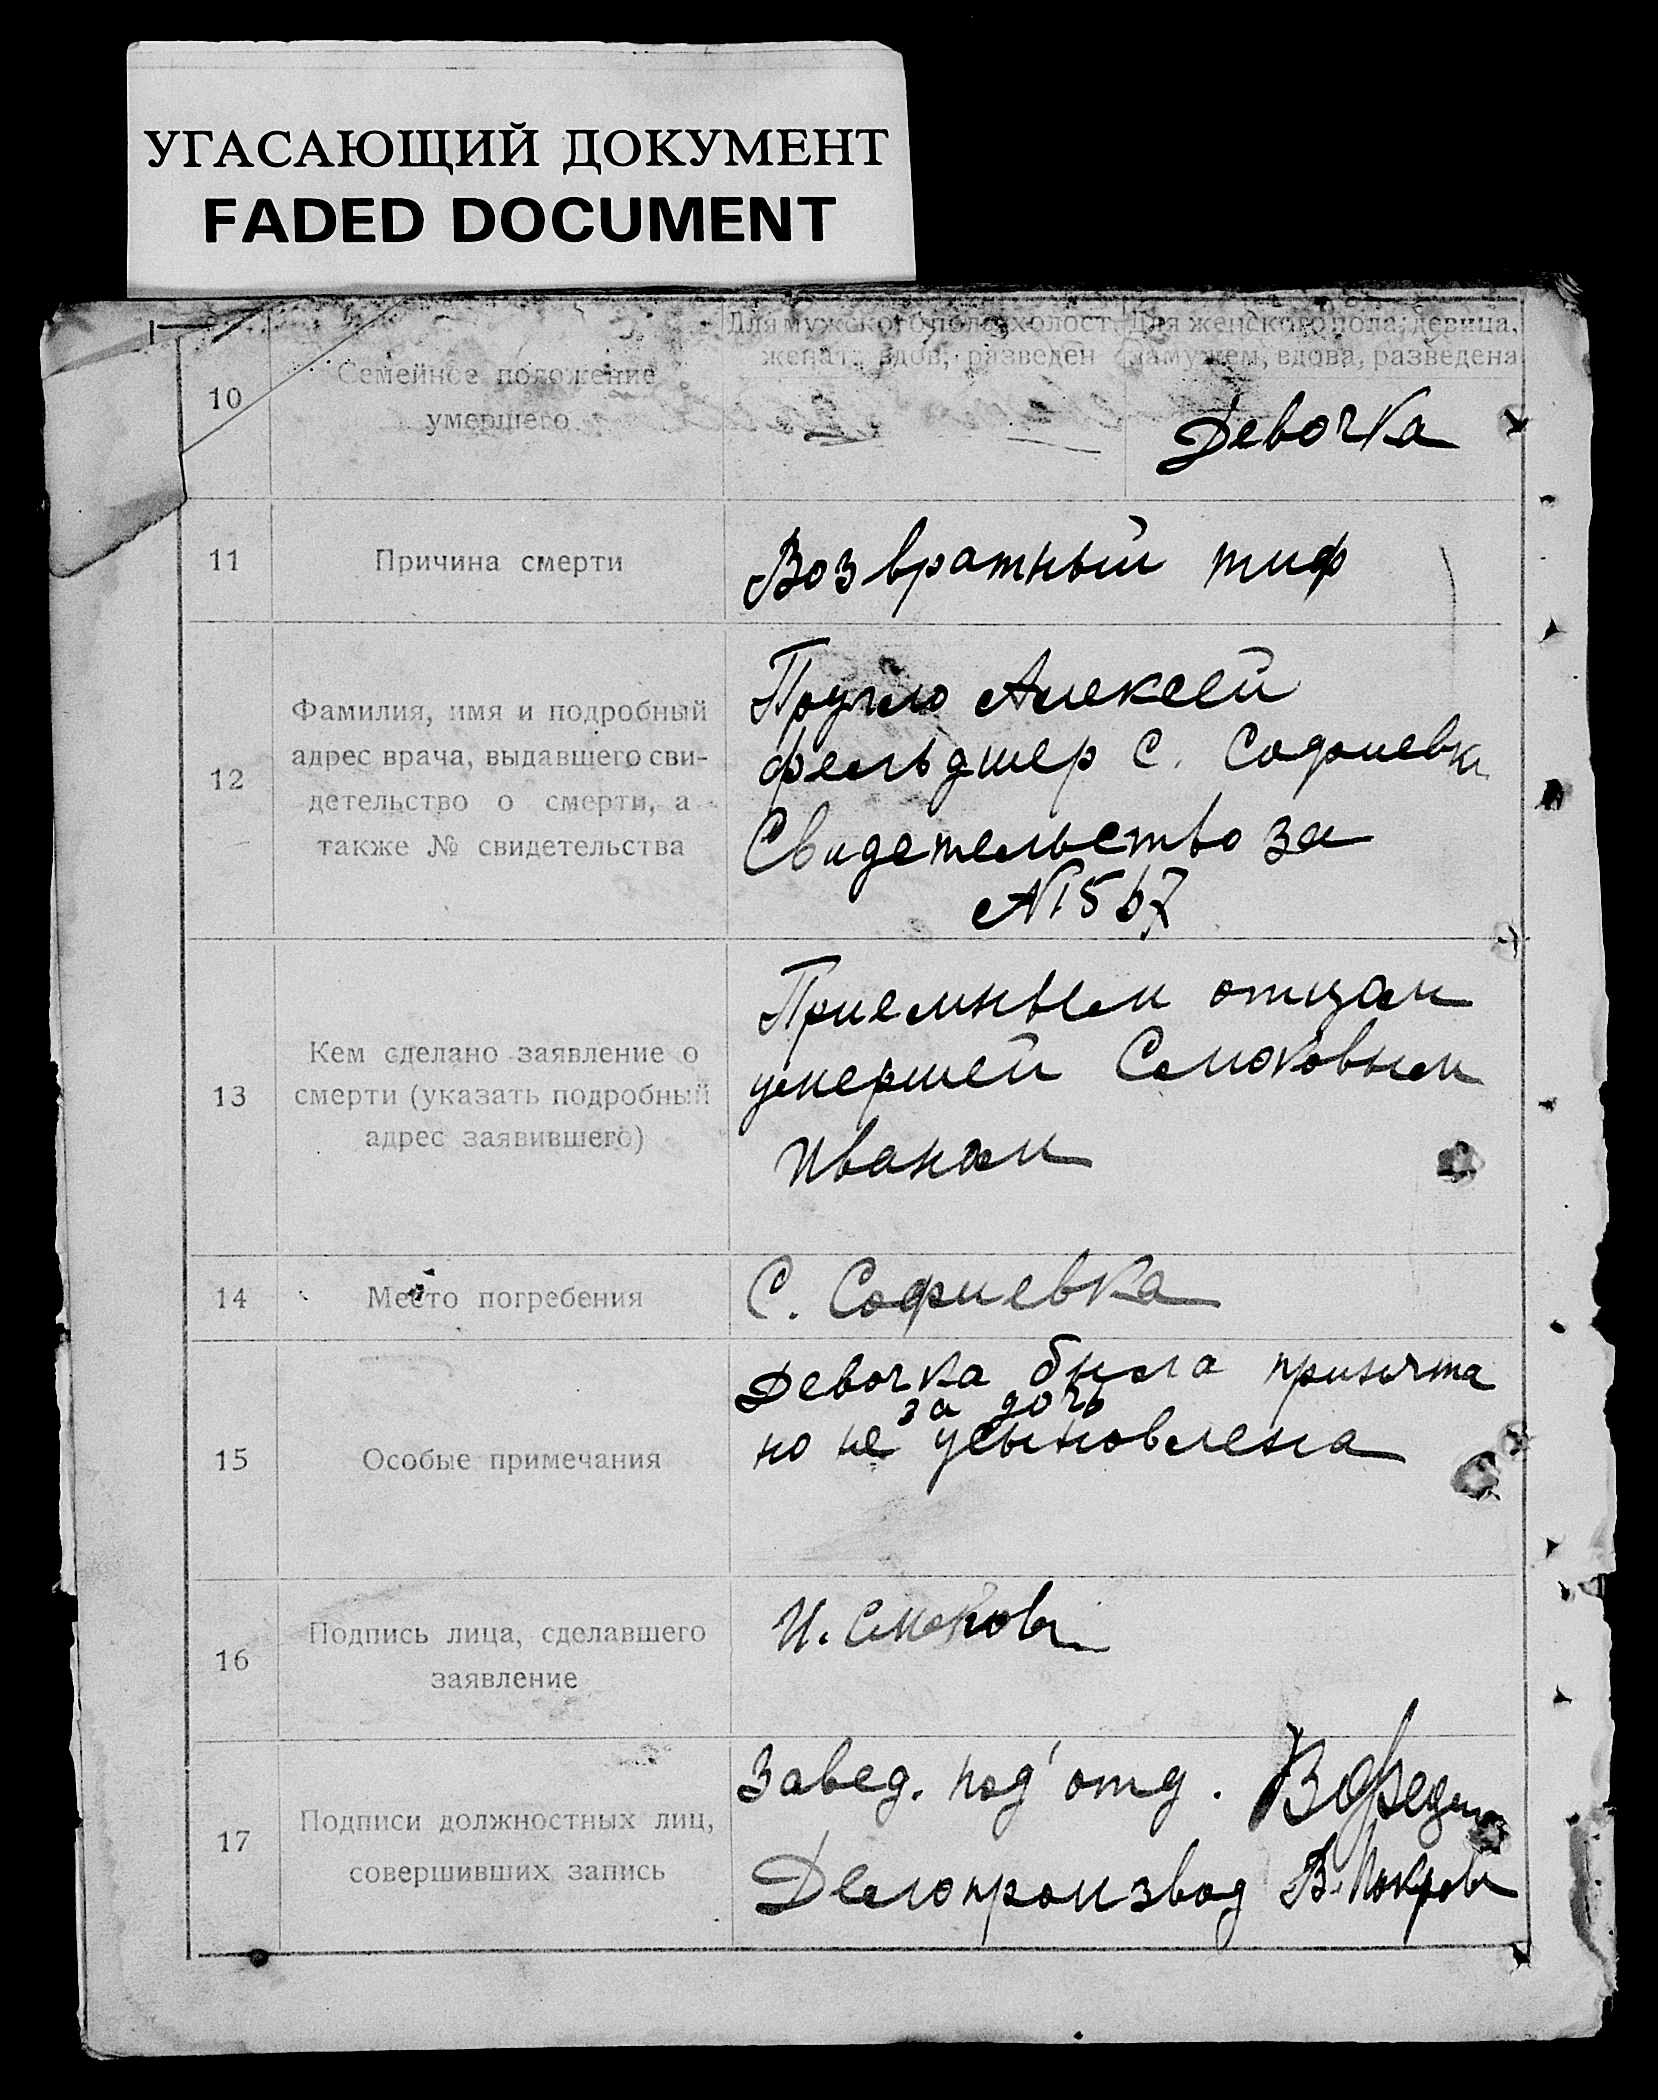 УГАСАЮЩИЙ ДОКУМЕНТ
FADED DOCUMENT
10
Семейное положение
умершего
Для мужского пола: холост,
женат, вдов, разведен
Для женского пола: девица,
замужем, вдова, разведена
Девочка
11
Причина смерти
Возвратный тиф
12
Фамилия, имя и подробный
адрес врача, выдавшего сви-
детельство о смерти, а
также № свидетельства
Алексей
фельдшер С. Софиевки
Свидетельство за
№ 1567
13
Кем сделано заявление о
смерти (указать подробный
адрес заявившего)
Приемным отцом
умершей Смоковым
Иваном
14
Место погребения
С. Софиевка
15
Особые примечания
Девочка была принята
за дочь
но не усыновлена
16
Подпись лица, сделавшего
заявление
И. Смоков
17
Подписи должностных лиц,
совершивших запись
Завед. под'отд.
Делопроизвод В.